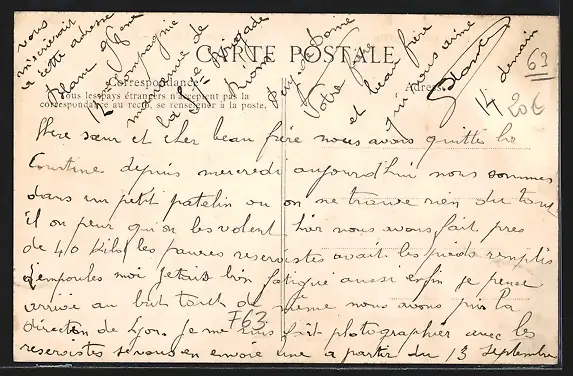 vous
m'écrirez
à cette adresse
Blanc
12me Compagnie
manœuvre de
la brigade
Riom
Puy de Dôme
Votre frère
et beau frère
qui vous aime
Blanc
14 demain
63
20€
CARTE POSTALE
Correspondance
Tous les pays étrangers n'acceptent pas la
correspondance au recto, se renseigner à la poste.
Adresse
Chère sœur et cher beau frère nous avons quitté la
Courtine depuis mercredi aujourdhui nous sommes
dans un petit patelin ou on ne trouve rien du tout
il on peur qu'on les volent hier nous avons fait pres
de 40 kilo les pauvres reservistes avait les pieds remplis
d'empoules moi jetait bien fatigué aussi enfin je pense
arrivé au but tout de même nous avons pris la
direction de Lyon. je me suis fait photographier avec les
763
reservistes je vous en envoie une a partir du 13 Septembre